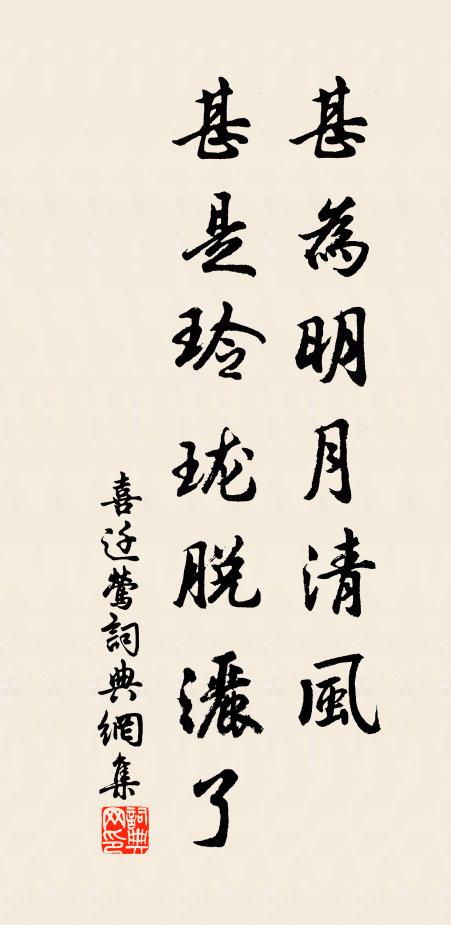 甚為明月清風
甚是玲珑脱灑了
喜迁鶯詞典網集
詞典网印